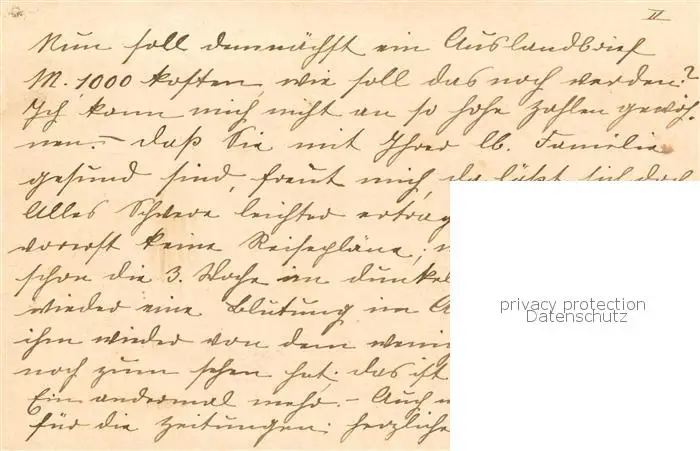 II
Nun soll demnächst ein Auslandbrief
M. 1000 kosten, wie soll das noch werden?
Ich kann mich nicht an so hohe Zahlen gewöh-
nen. – daß Sie mit Ihrer lb. Familie
gesund sind, freut mich, da läßt sich doch
Alles Schwere leichter ertrag
vorerst keine Reisepläne,
schon die 3. Woche im dunkel
wieder eine Blutung im A
ihm wieder von dem wenig
noch zum sehen hat; das ist
Ein andermal mehr. – Auch
für die Zeitungen; herzliche
privacy protection
Datenschutz